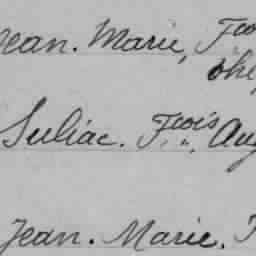 Jean. Marie, Fcois
Suliac. Fcois Aug
Jean. Marie.